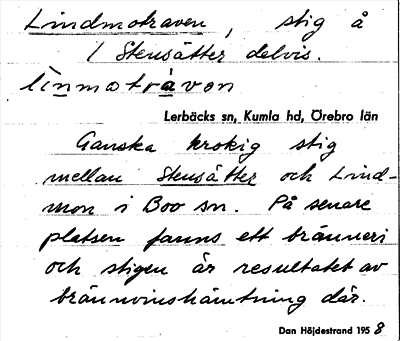 Lindmotraven, stig å
/ Stensätter delvis.
lìnmotràvən
Lerbäcks sn, Kumla hd, Örebro län
Ganska krokig stig
mellan Stensätter och Lind-
mon i Boo sn. På senare
platsen fanns ett bränneri
och stigen är resultatet av
brännvinshämtning där.
Dan Höjdestrand 1958